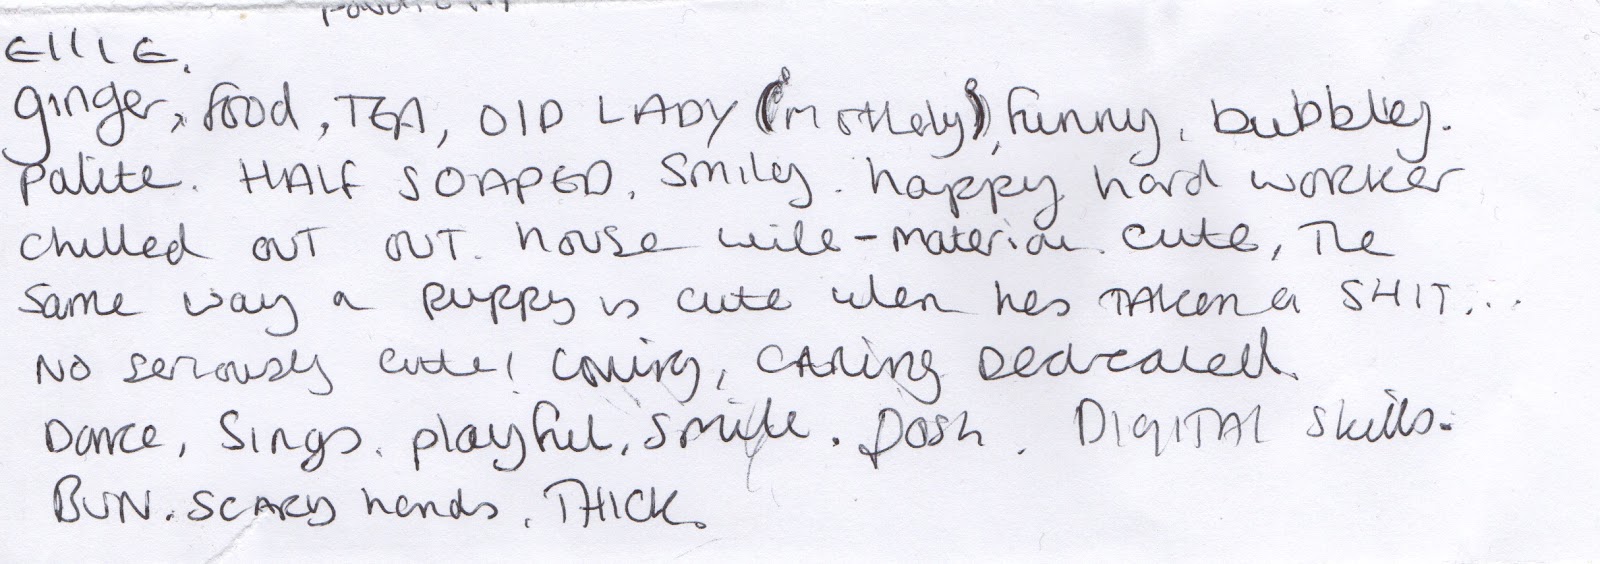 EllIE.
ginger, food, TEA, OlD LADY (mothely), funny, bubbley.
palite. HALF SOAPED, Smiley. happy hard worker
chilled OUT OUT. house wife-material. cute, The
same way a puppy is cute when hes TAKen a SHIT...
NO seriously cute! Loving, CARing Dedicated.
Dance, Sings. playful, smile. posh. DIGITAL skills.
BUN. SCARY hands. THICK.